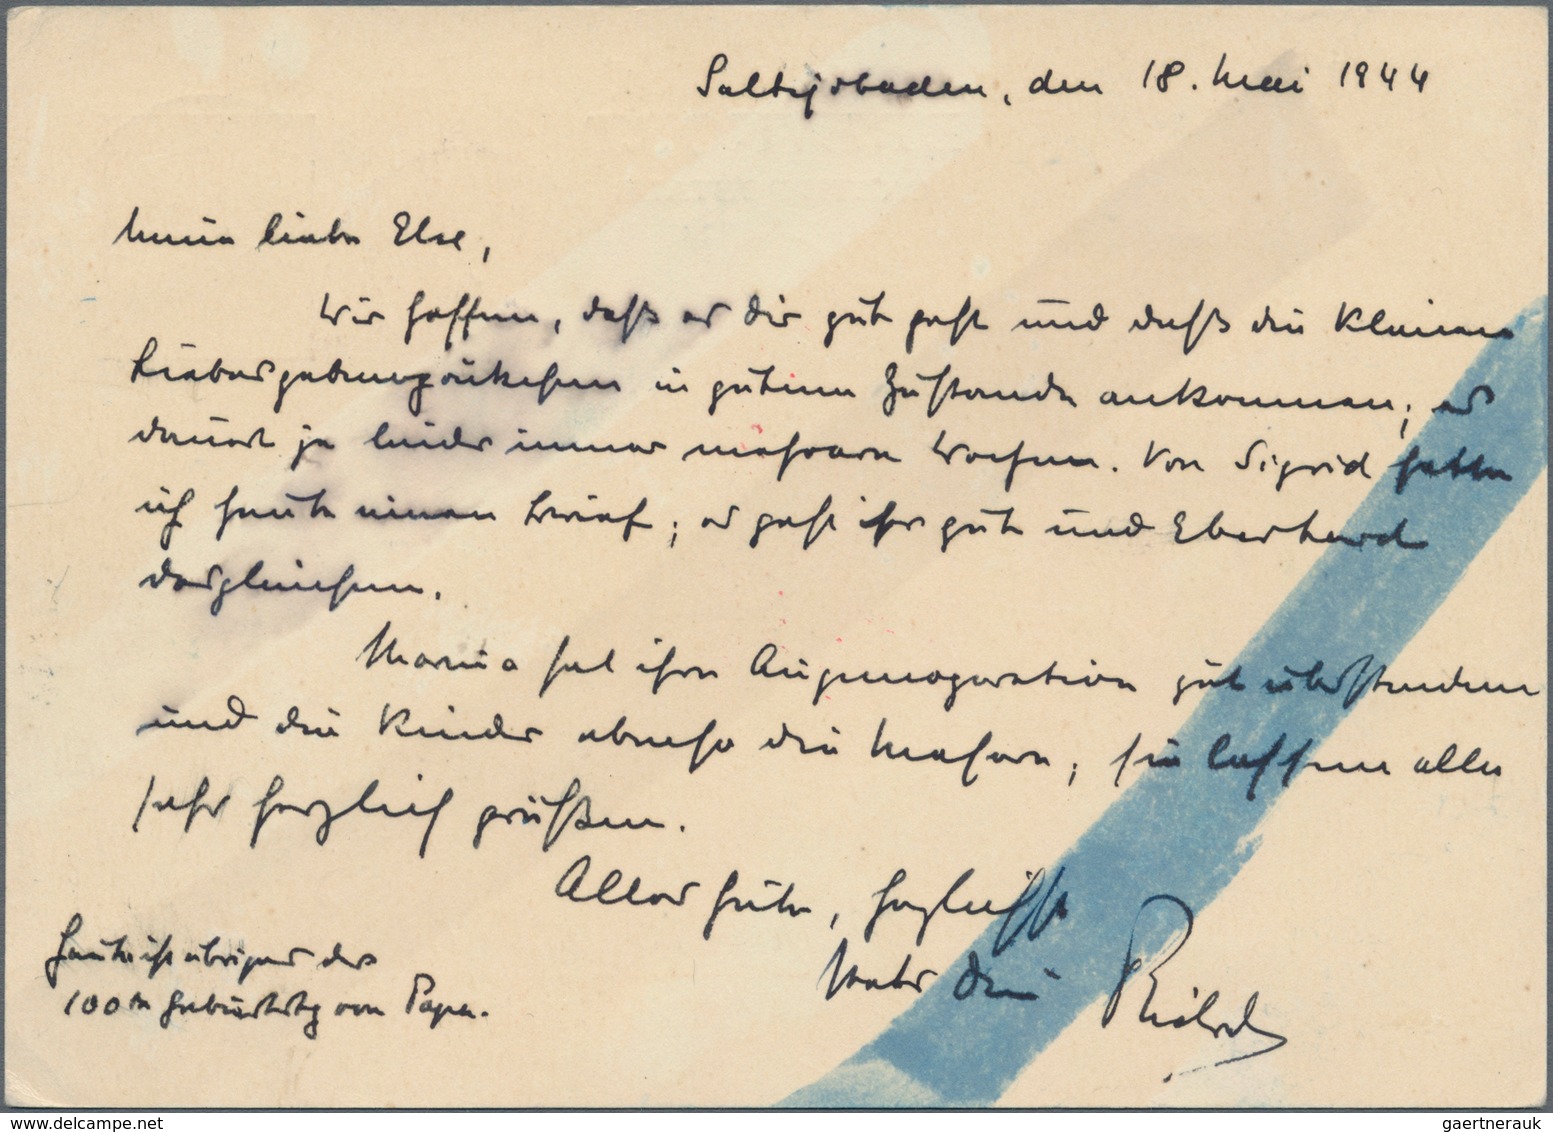 Saltsjobaden, den 18. Mai 1944
Meine liebe Else,
Wir hoffen, daß es Dir gut geht und daß die kleinen
Liebesgabenpäckchen in gutem Zustande ankommen; es
dauert ja leider immer mehrere Wochen. Von Sigrid hatte
ich heute einen Brief; es geht ihr gut und Eberhard
desgleichen.
Maria hat ihre Augenoperation gut überstanden
und die Kinder ebenso die Masern; sie lassen alle
sehr herzlich grüßen.
Alles Gute, herzlichst
stets Dein
Heute ist übrigens der
100te Geburtstg von Papa.
gaertnerauk